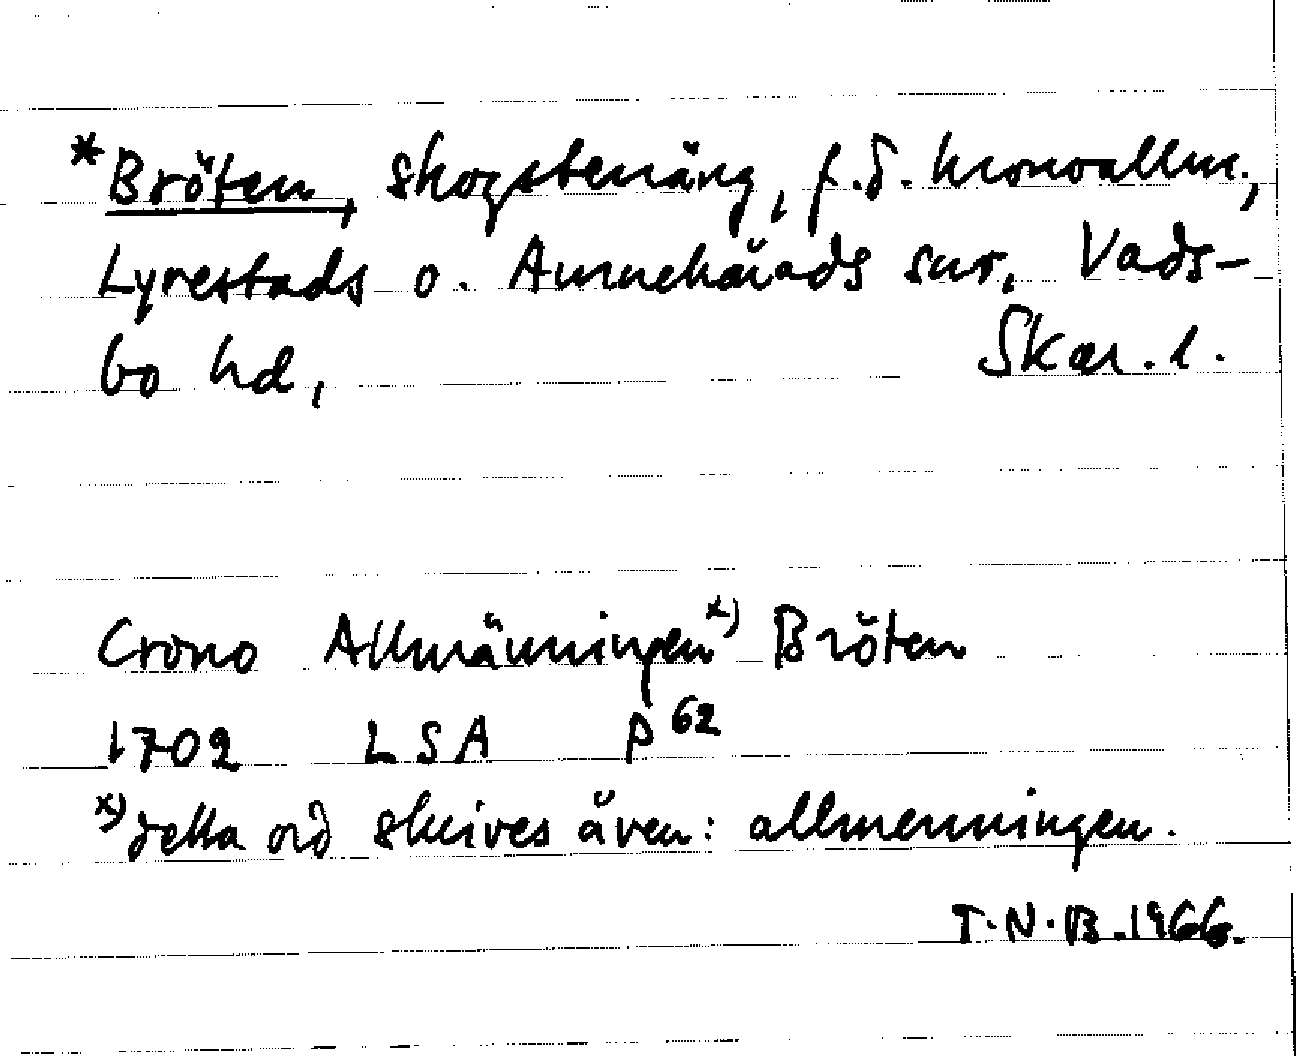 *Bröten, skogsterräng, f.d. kronoallm.,
Lyrestads o. Amnehärads snr, Vads-
bo hd, Skar. l.
Crono Allmänningen x) Bröten
1702 LSA P 62
x) detta ord skrives även: allmenningen.
T.N.B. 1966.